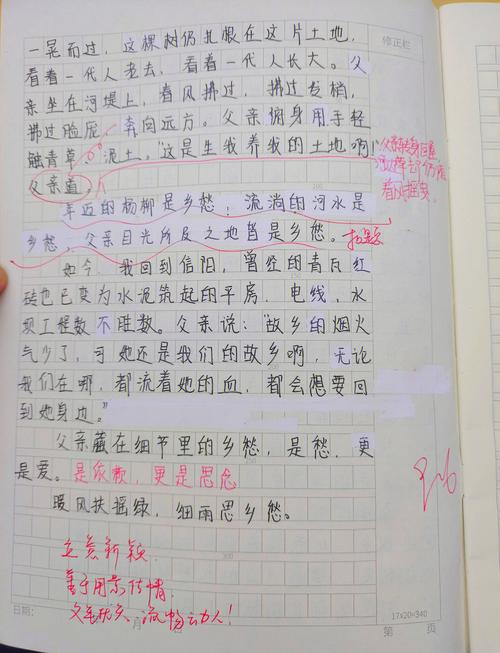 一晃而过，这棵树仍扎根在这片土地，
看着一代人老去，看着一代人长大。父
亲坐在河堤上，春风拂过，拂过发梢，
拂过脸庞，奔向远方。父亲俯身用手轻
触青草、泥土。"这是生我养我的土地啊！"
父亲道。
年迈的杨柳是乡愁，流淌的河水是
乡愁，父亲目光所及之地皆是乡愁。
点题
如今，我回到信阳，曾经的青瓦红
砖也已变为水泥筑起的平房，电线，水
坝工程数不胜数。父亲说："故乡的烟火
气少了，可她还是我们的故乡啊，无论
我们在哪，都流着她的血，都会想要回
到她身边。"
父亲藏在细节里的乡愁，是愁，更
是爱。是依赖，更是思念
暖风扶摇绿，细雨思乡愁。
立意新颖
善于用景传情
文笔优美，流畅动人！
修正栏
日期：
月
17x20=340
第 页